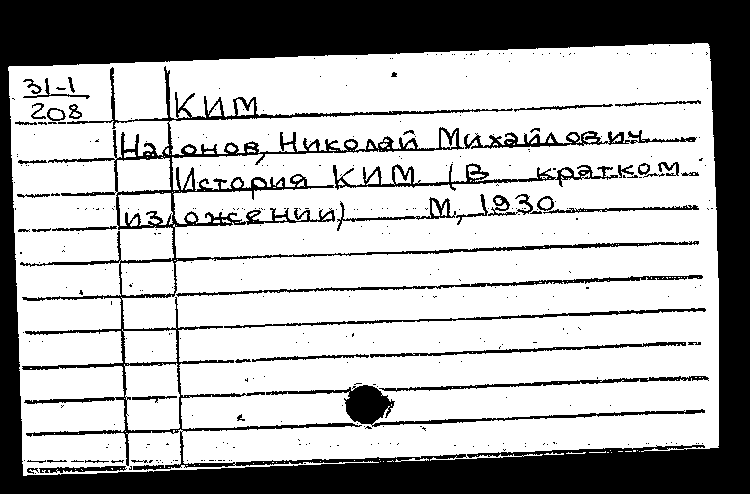 31-1
208
КИМ
Насонов, Николай Михайлович
История КИМ (В кратком
изложении) М., 1930